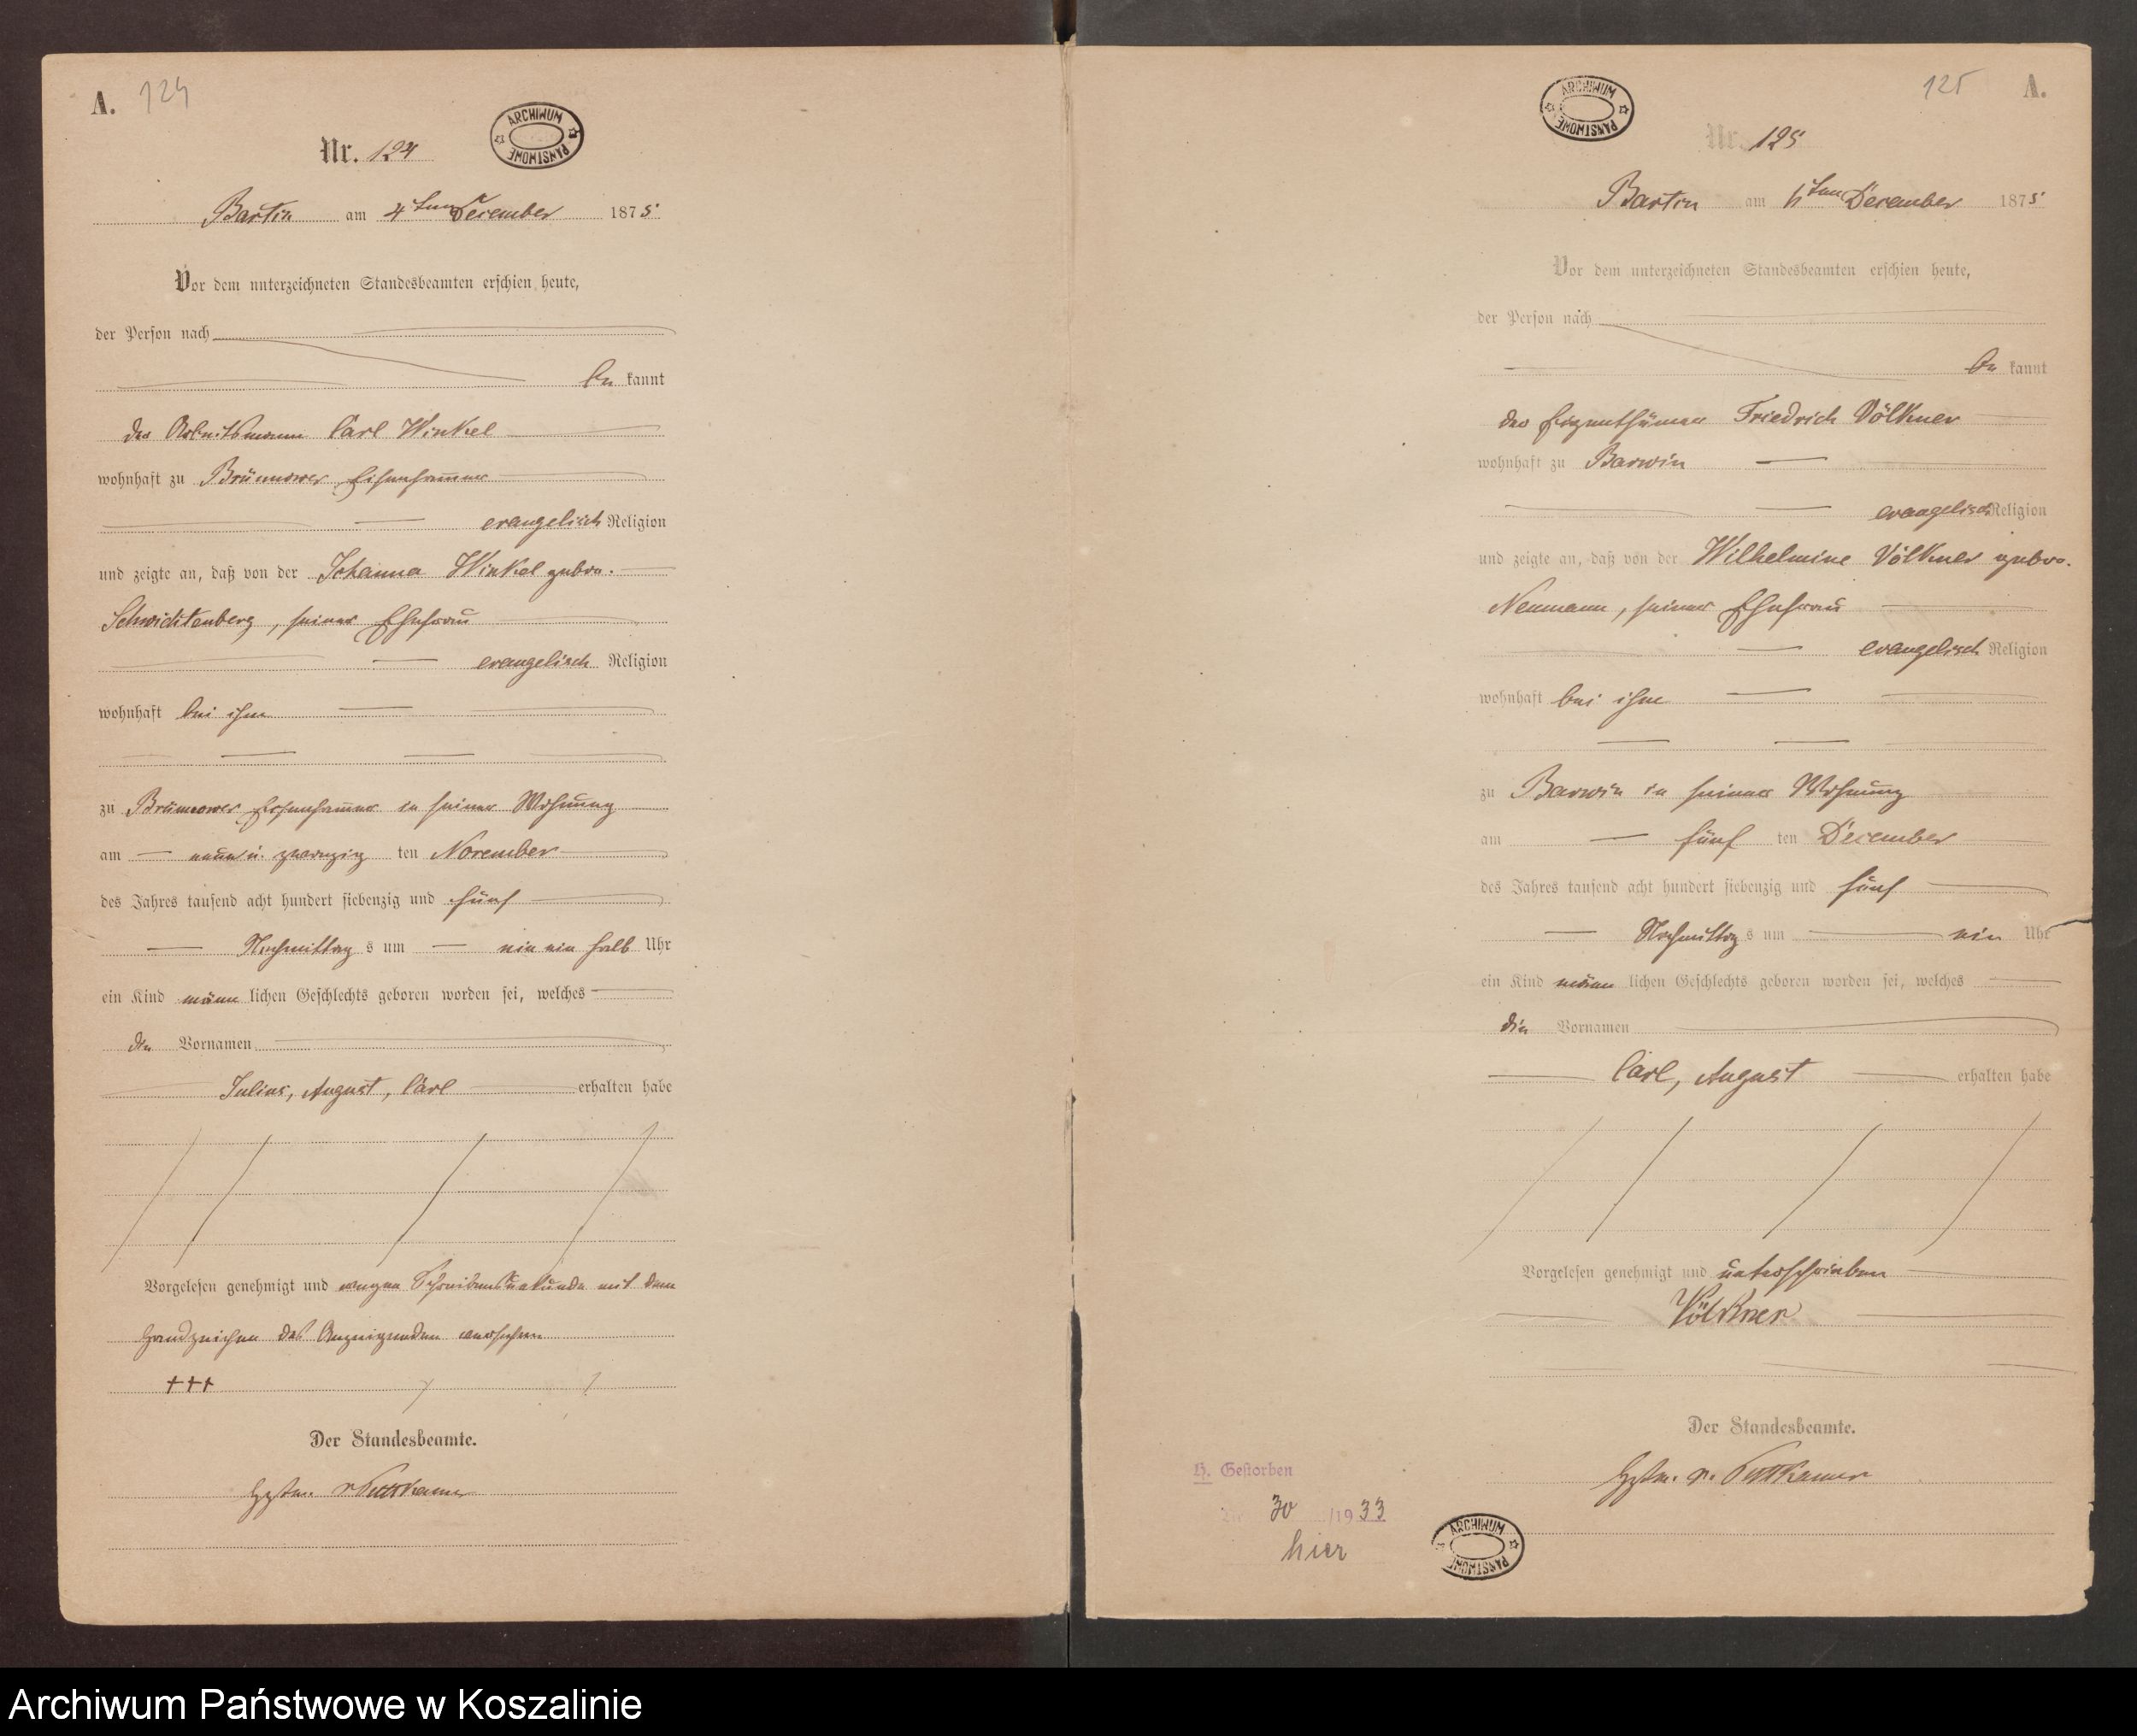 A. 124
ARCHIWUM PAŃSTWOWE
Nr. 124
Bartin am 4ten December 1875
Vor dem unterzeichneten Standesbeamten erschien heute,
der Person nach
be kannt
der Arbeitsmann Carl Winkel
wohnhaft zu Brünnower Eisenhammer
evangelisch Religion
und zeigte an, daß von der Johanna Winkel gebor.
Schwichtenberg, seiner Ehefrau
evangelisch Religion
wohnhaft bei ihm
zu Brünnower Eisenhammer in seiner Wohnung
am neun u. zwanzig ten November
des Jahres tausend acht hundert siebenzig und fünf
Nachmittag s um ein ein halb Uhr
ein Kind männ lichen Geschlechts geboren worden sei, welches
die Vornamen
Julius, August, Carl erhalten habe
Vorgelesen genehmigt und wegen Schreibensunkunde mit dem
Handzeichen des Anzeigenden versehen
+++
Der Standesbeamte.
v Puttkamer
125 A.
ARCHIWUM PAŃSTWOWE
Nr. 125
Bartin am 6ten December 1875
Vor dem unterzeichneten Standesbeamten erschien heute,
der Person nach
be kannt
der Eigenthümer Friedrich Völkner
wohnhaft zu Barwin
evangelisch Religion
und zeigte an, daß von der Wilhelmine Völkner gebor.
Neumann, seiner Ehefrau
evangelisch Religion
wohnhaft bei ihm
zu Barwin in seiner Wohnung
am fünf ten December
des Jahres tausend acht hundert siebenzig und fünf
Nachmittag s um ein Uhr
ein Kind männ lichen Geschlechts geboren worden sei, welches
die Vornamen
Carl, August erhalten habe
Vorgelesen genehmigt und unterschrieben
Völkner
Der Standesbeamte.
v. Puttkamer
H. Gestorben
Nr. 30 /1933
hier
ARCHIWUM PAŃSTWOWE
Archiwum Państwowe w Koszalinie